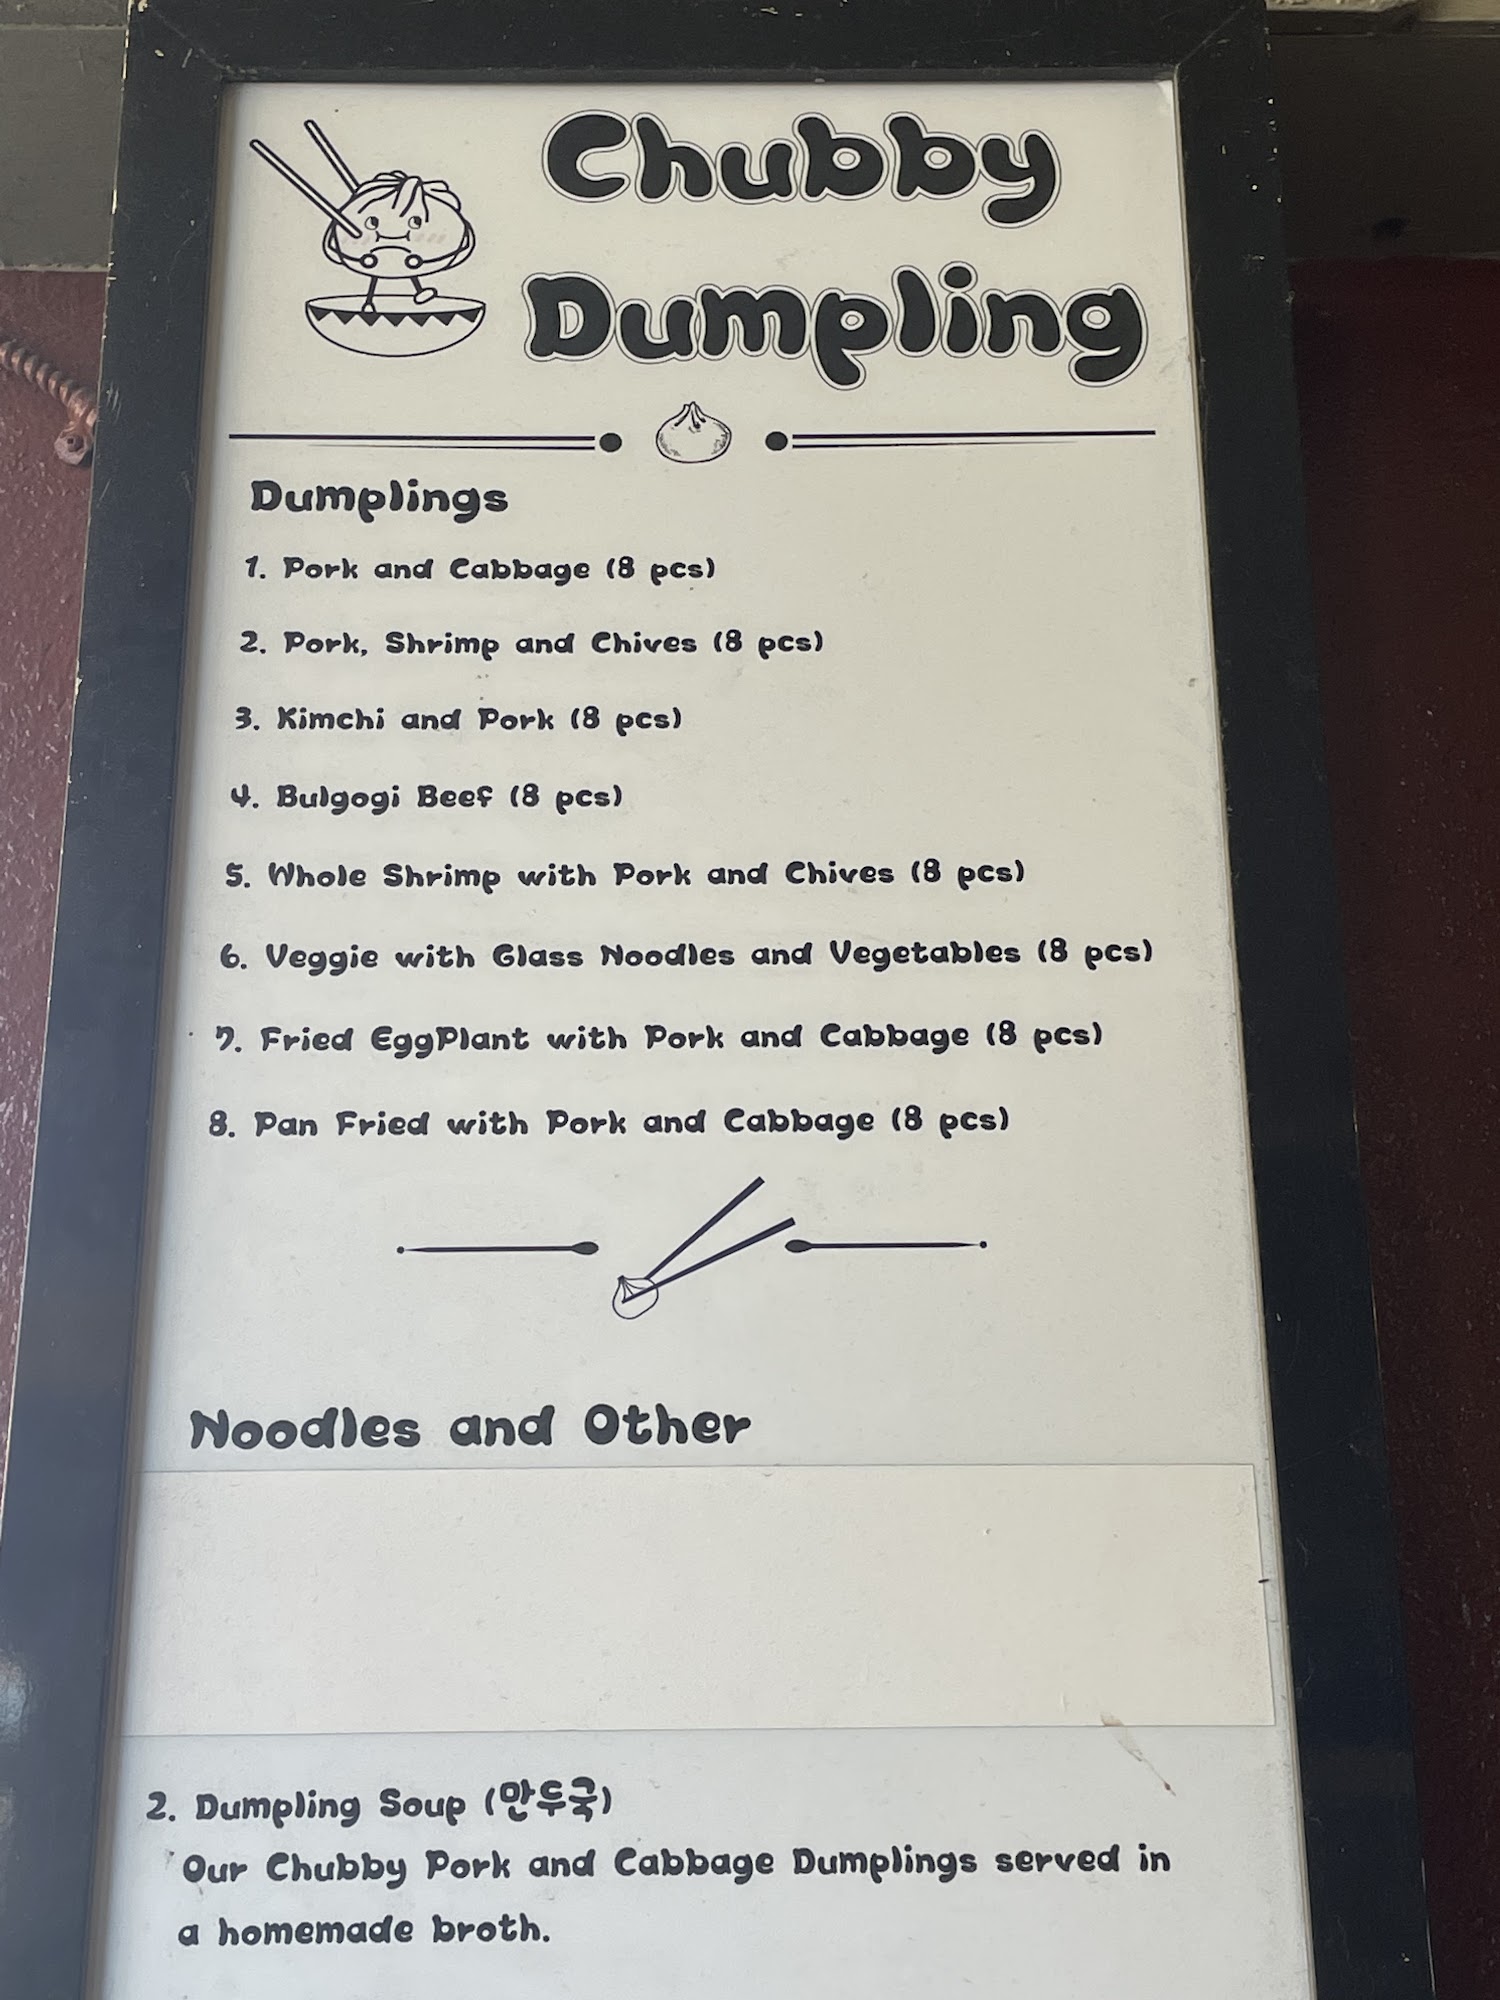 Chubby
Dumpling
Dumplings
1. Pork and Cabbage (8 pcs)
2. Pork, Shrimp and Chives (8 pcs)
3. Kimchi and Pork (8 pcs)
4. Bulgogi Beef (8 pcs)
5. Whole Shrimp with Pork and Chives (8 pcs)
6. Veggie with Glass Noodles and Vegetables (8 pcs)
7. Fried EggPlant with Pork and Cabbage (8 pcs)
8. Pan Fried with Pork and Cabbage (8 pcs)
Noodles and Other
2. Dumpling Soup (만두국)
Our Chubby Pork and Cabbage Dumplings served in
a homemade broth.